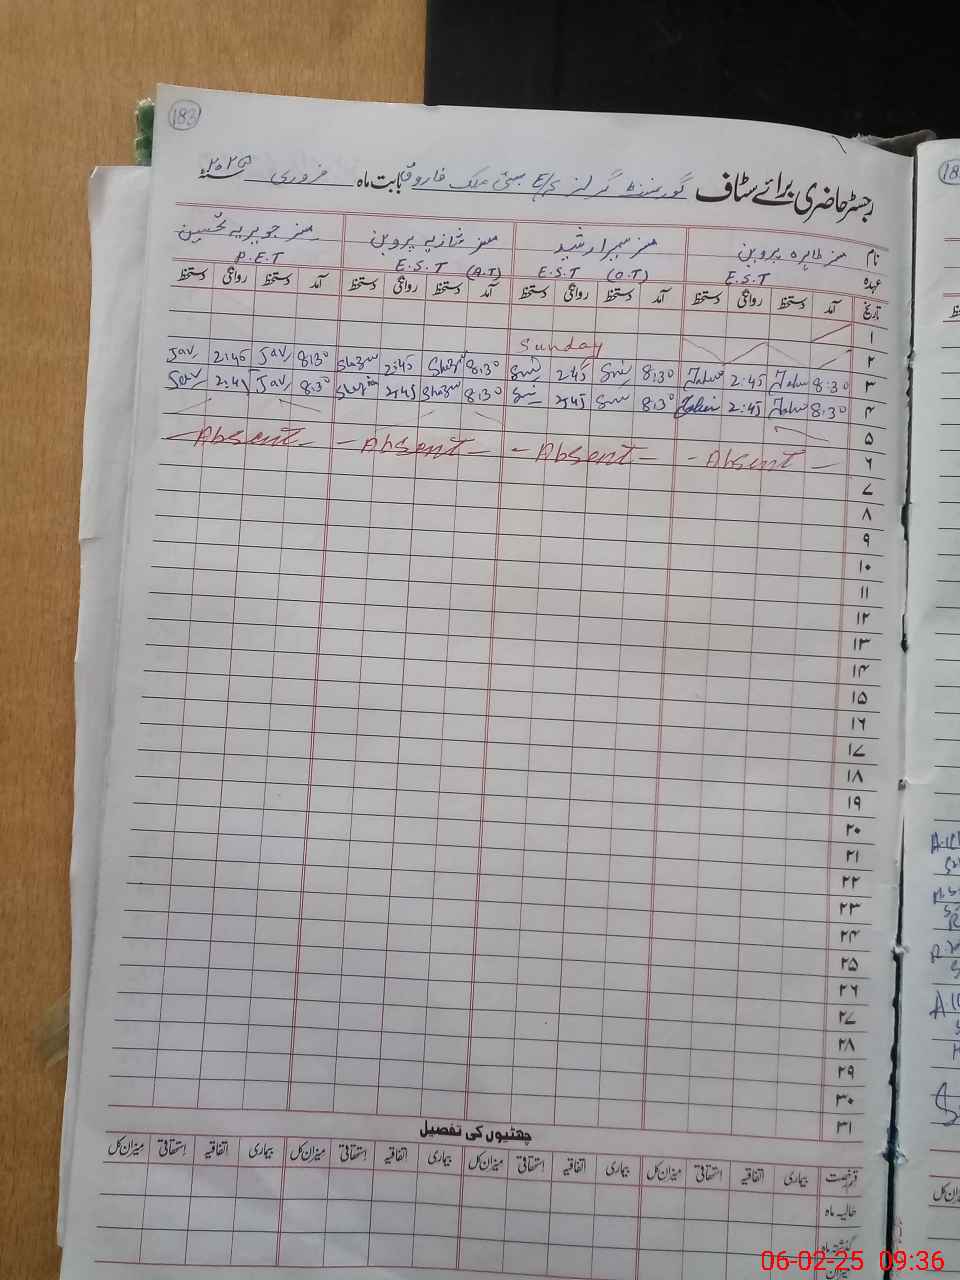 183
رجسٹر حاضری برائے سٹاف گورنمنٹ گرلز E/S بستی ملک فاروق بابت ماہ فروری سنہ ۲۰۲۵
نام مسز طاہرہ پروین مسز سمیرا رشید مسز شازیہ پروین مسز جویریہ تحسین
عہدہ E.S.T E.S.T (O.T) E.S.T (A.T) P.E.T
تاریخ آمد دستخط روانگی دستخط آمد دستخط روانگی دستخط آمد دستخط روانگی دستخط آمد دستخط روانگی دستخط
۱
۲ Sunday
۳ 8:30 2:45 8:30 2:45 8:30 2:45 8:30 2:45
۴ 8:30 2:45 8:30 2:45 8:30 2:45 8:30 2:45
۵
۶ Absent Absent Absent Absent
۷
۸
۹
۱۰
۱۱
۱۲
۱۳
۱۴
۱۵
۱۶
۱۷
۱۸
۱۹
۲۰
۲۱
۲۲
۲۳
۲۴
۲۵
۲۶
۲۷
۲۸
۲۹
۳۰
۳۱
چھٹیوں کی تفصیل
قسم رخصت بیماری اتفاقیہ استحقاقی میزان کل بیماری اتفاقیہ استحقاقی میزان کل بیماری اتفاقیہ استحقاقی میزان کل بیماری اتفاقیہ استحقاقی میزان کل
حالیہ ماہ
گذشتہ ماہ
میزان
06-02-25 09:36